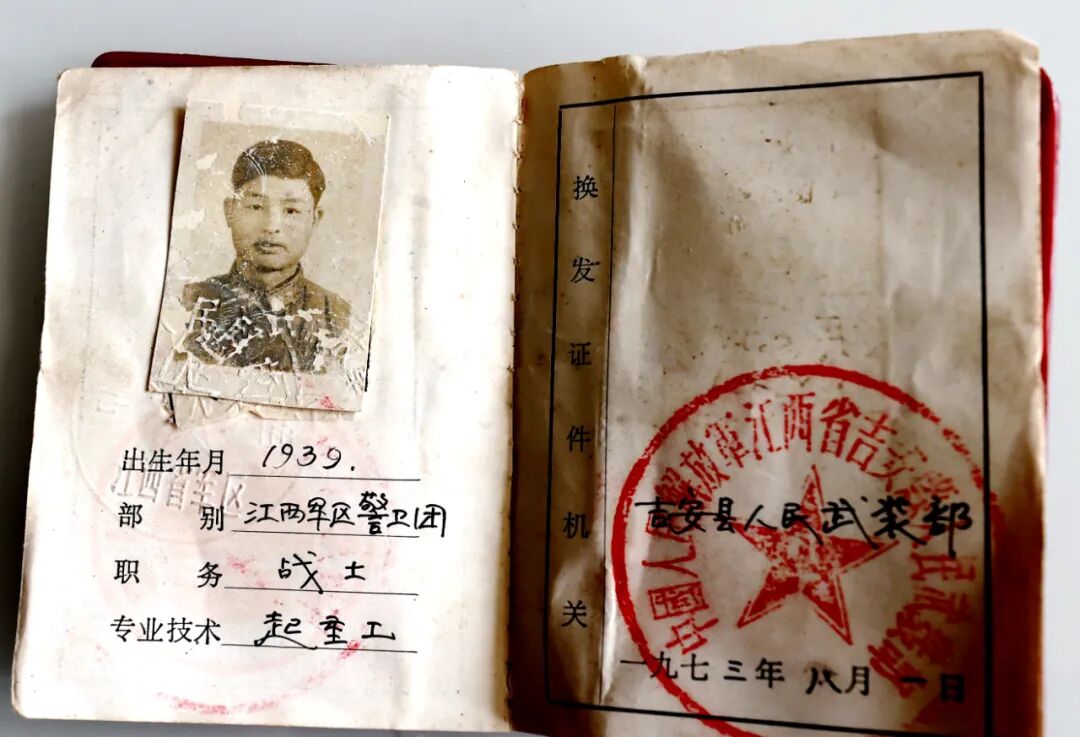 出生年月 1939.
江西省军区
部别 江西军区警卫团
职务 战士
专业技术 起重工
换发证件机关
吉安县人民武装部
中国人民解放军江西省吉安县人民武装部
一九七三年八月一日